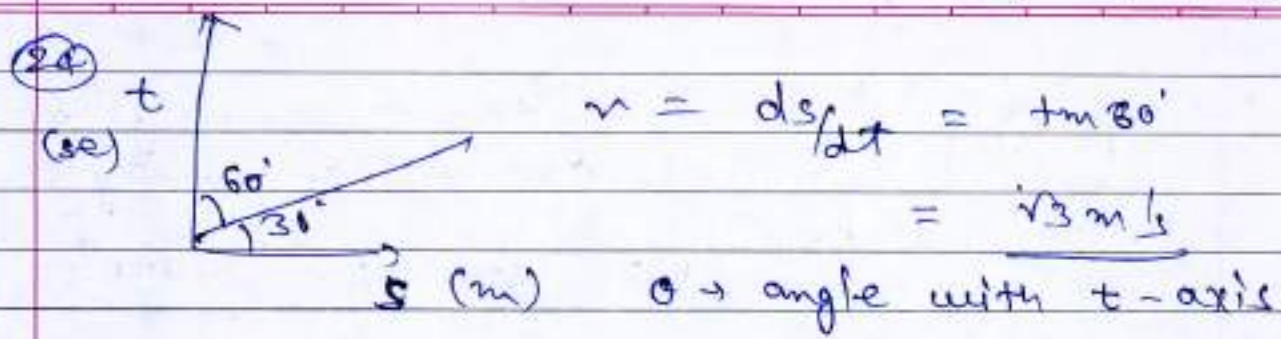 24
t
(se)
60°
30°
s (m)
v = ds/dt = tan 60°
= √3 m/s
θ → angle with t-axis